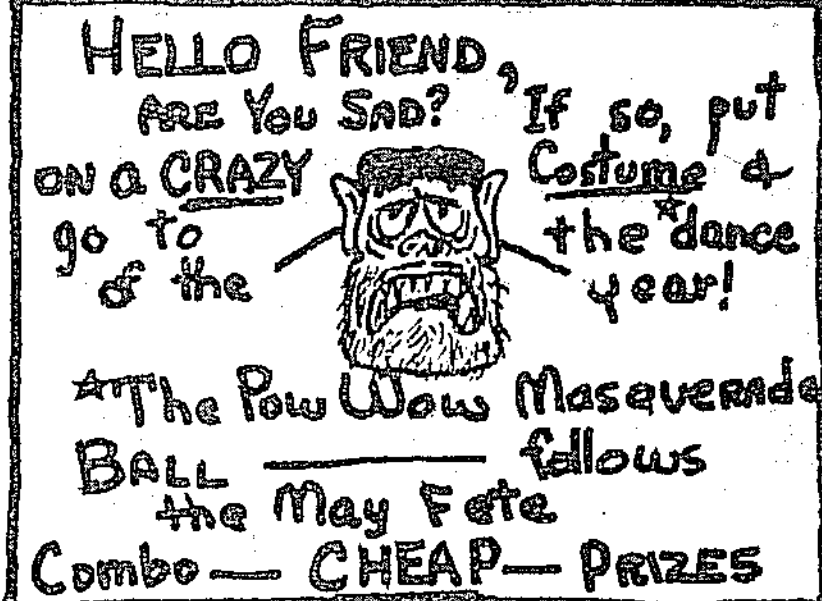 HELLO FRIEND,
ARE YOU SAD? If so, put
ON a CRAZY Costume &
go to the ☆dance
of the year!
☆The Pow Wow Masquerade
BALL — follows
the May Fete
Combo — CHEAP — PRIZES